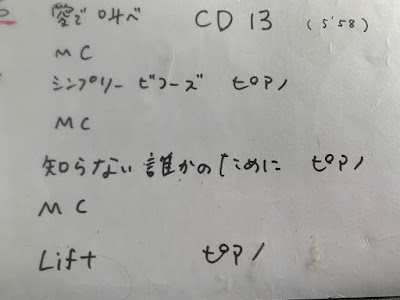 愛で叫べ CD 13 (5'58)
MC
シンプリー ビコーズ ピアノ
MC
知らない誰かのために ピアノ
MC
Lift ピアノ